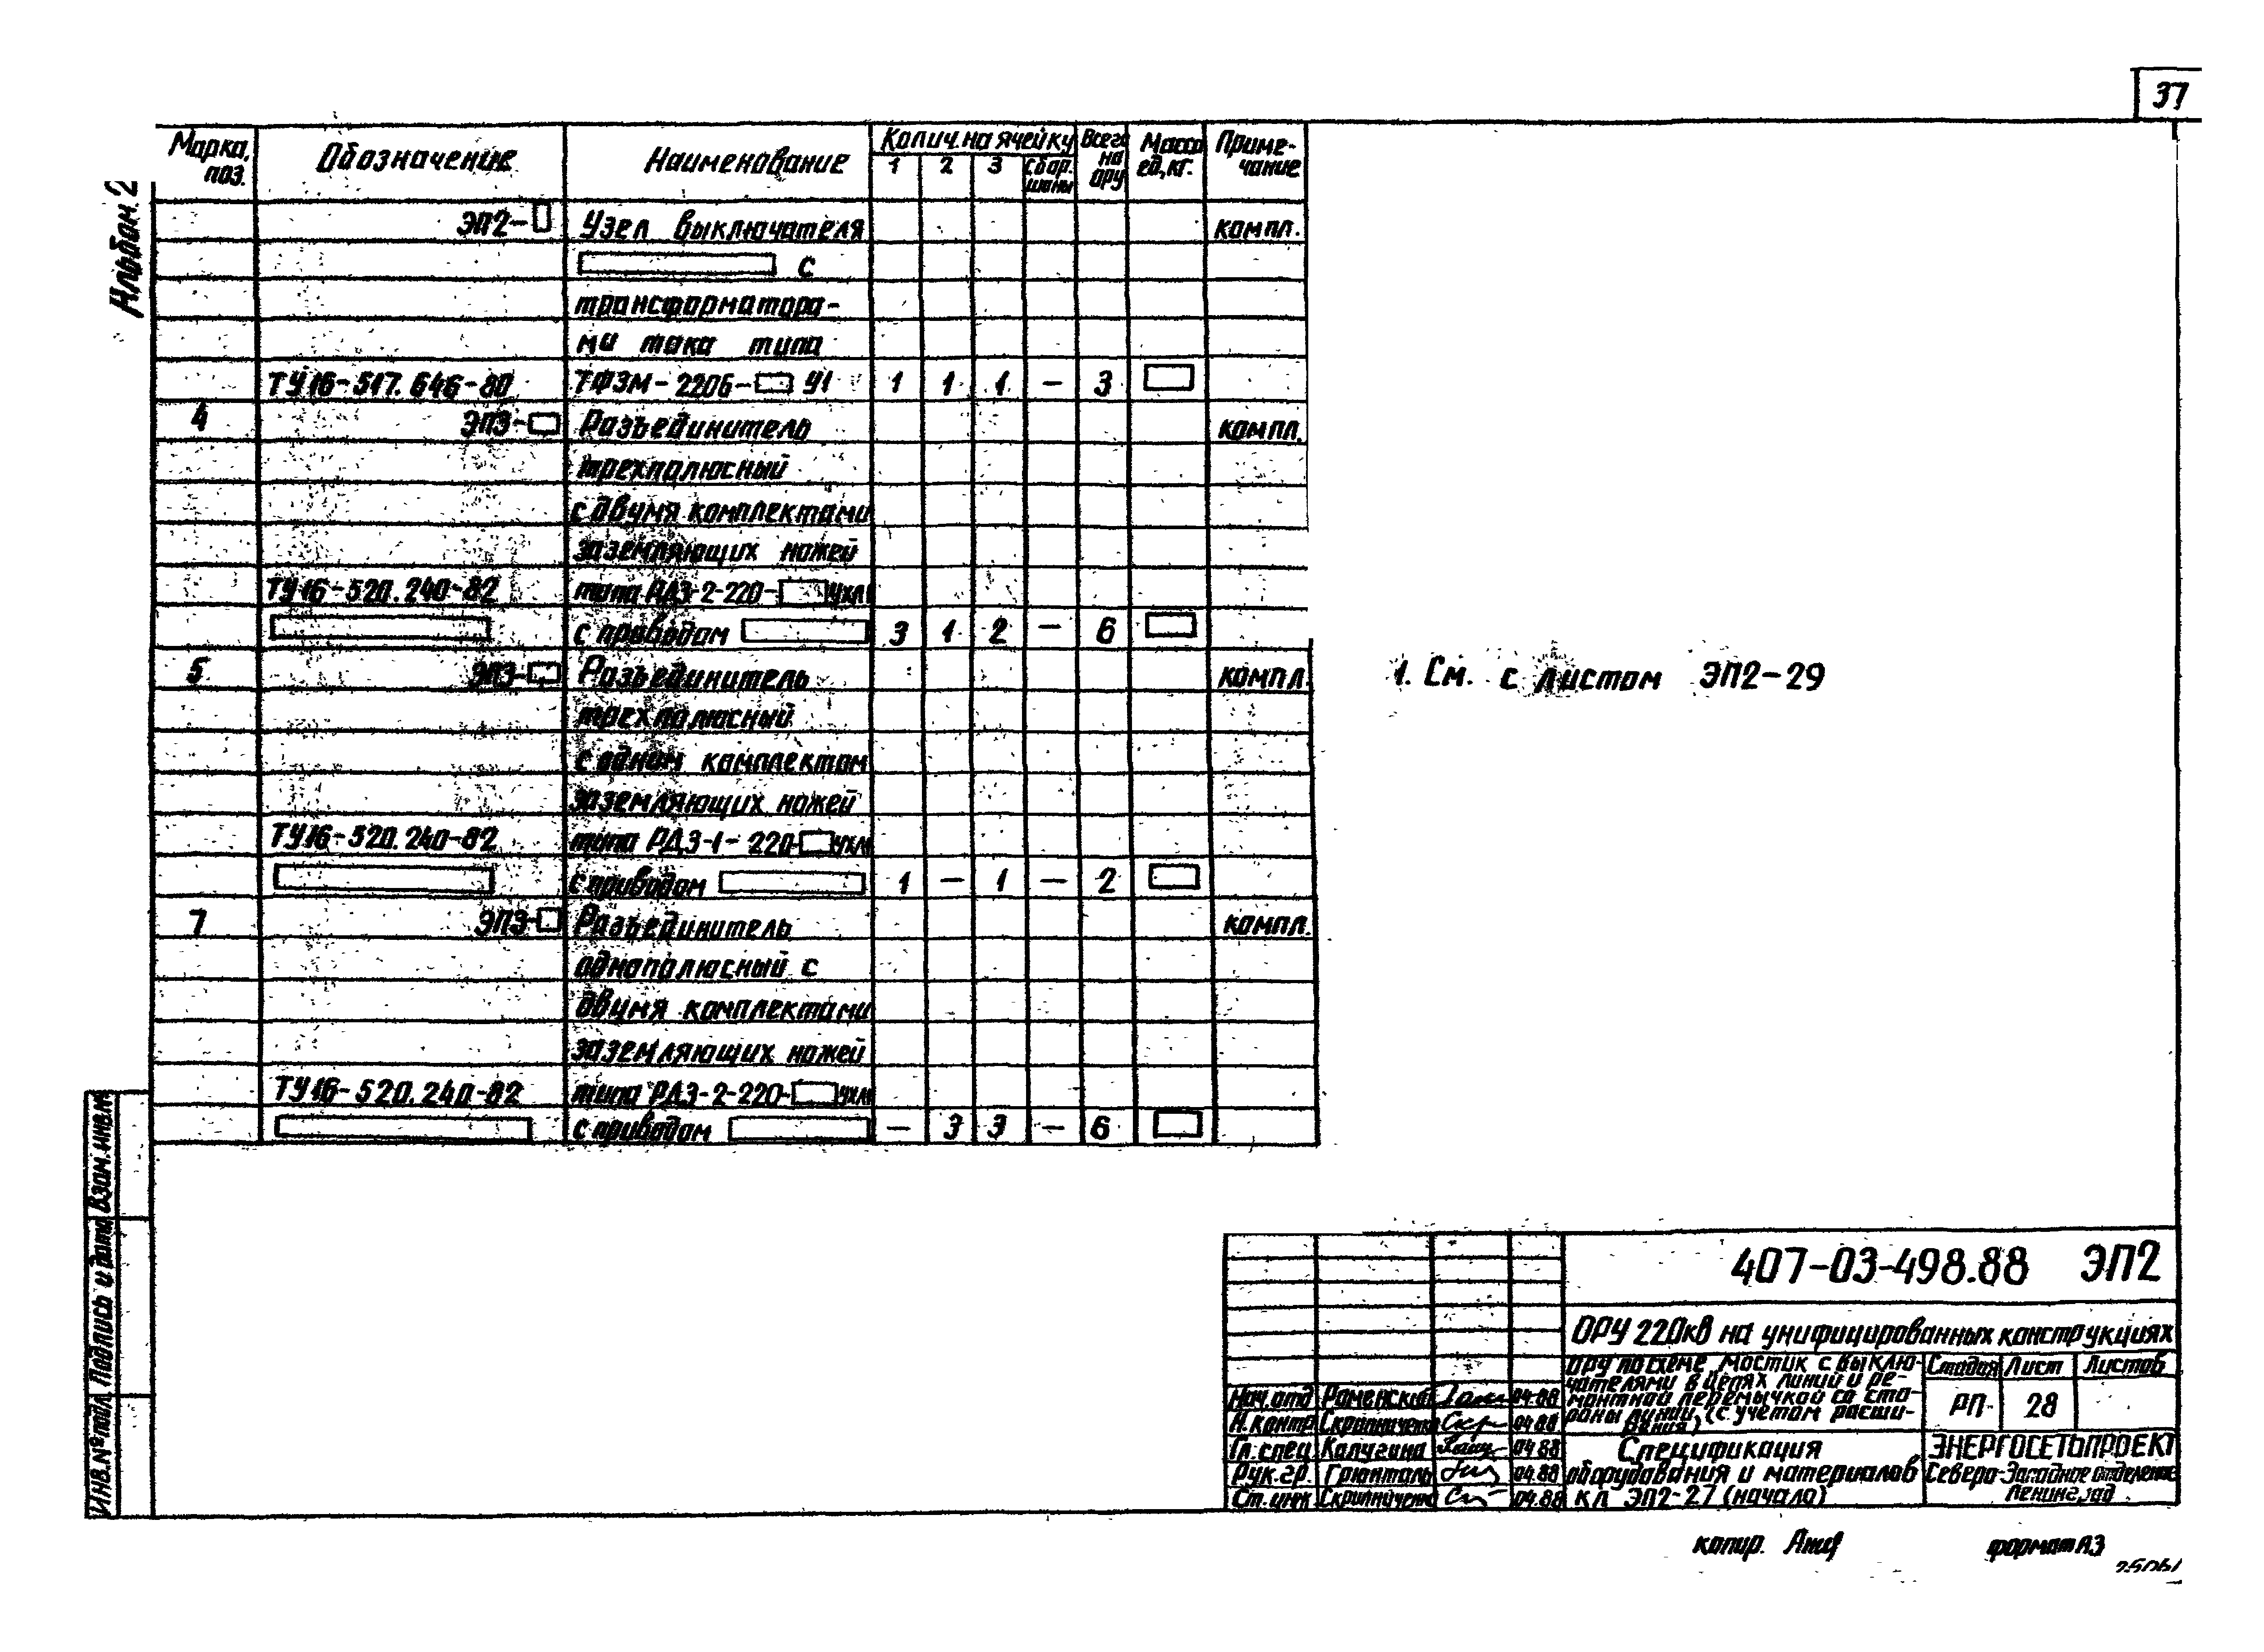 37
Альбом 2
Марка, поз. Обозначение Наименование Колич. на ячейку Всего на ОРУ Масса ед, кг. Приме-чание
1 2 3 Сбор. шины
ЭП2- Узел выключателя компл.
с
трансформатора-
ми тока типа
ТУ16-517.646-80 ТФЗМ-220Б- У1 1 1 1 — 3
4 ЭП3- Разъединитель компл.
трехполюсный
с двумя комплектами
заземляющих ножей
ТУ16-520.240-82 типа РДЗ-2-220- УХЛ1
с приводом 3 1 2 — 6
5 ЭП3- Разъединитель компл.
трехполюсный
с одном комплектом
заземляющих ножей
ТУ16-520.240-82 типа РДЗ-1-220- УХЛ1
с приводом 1 — 1 — 2
7 ЭП3- Разъединитель компл.
однополюсный с
двумя комплектами
заземляющих ножей
ТУ16-520.240-82 типа РДЗ-2-220- УХЛ1
с приводом — 3 3 — 6
1. См. с листом ЭП2-29
Инв. № подл. Подпись и дата Взам. инв. №
407-03-498.88 ЭП2
ОРУ 220кВ на унифицированных конструкциях
ОРУ по схеме мостик с выклю-
чателями в цепях линий и ре-
монтной перемычкой со сто-
роны линий (с учетом расши-
рения)
Стадия Лист Листов
РП 28
Нач. отд Роменский 04.88
Н. контр Скрипниченко 04.88
Гл. спец. Калугина 04.88
Рук. гр. Грюнталь 04.88
Ст. инж Скрипниченко 04.88
Спецификация
оборудования и материалов
кл ЭП2-27 (начало)
ЭНЕРГОСЕТЬПРОЕКТ
Северо-Западное отделение
Ленинград
копир.
формат А3